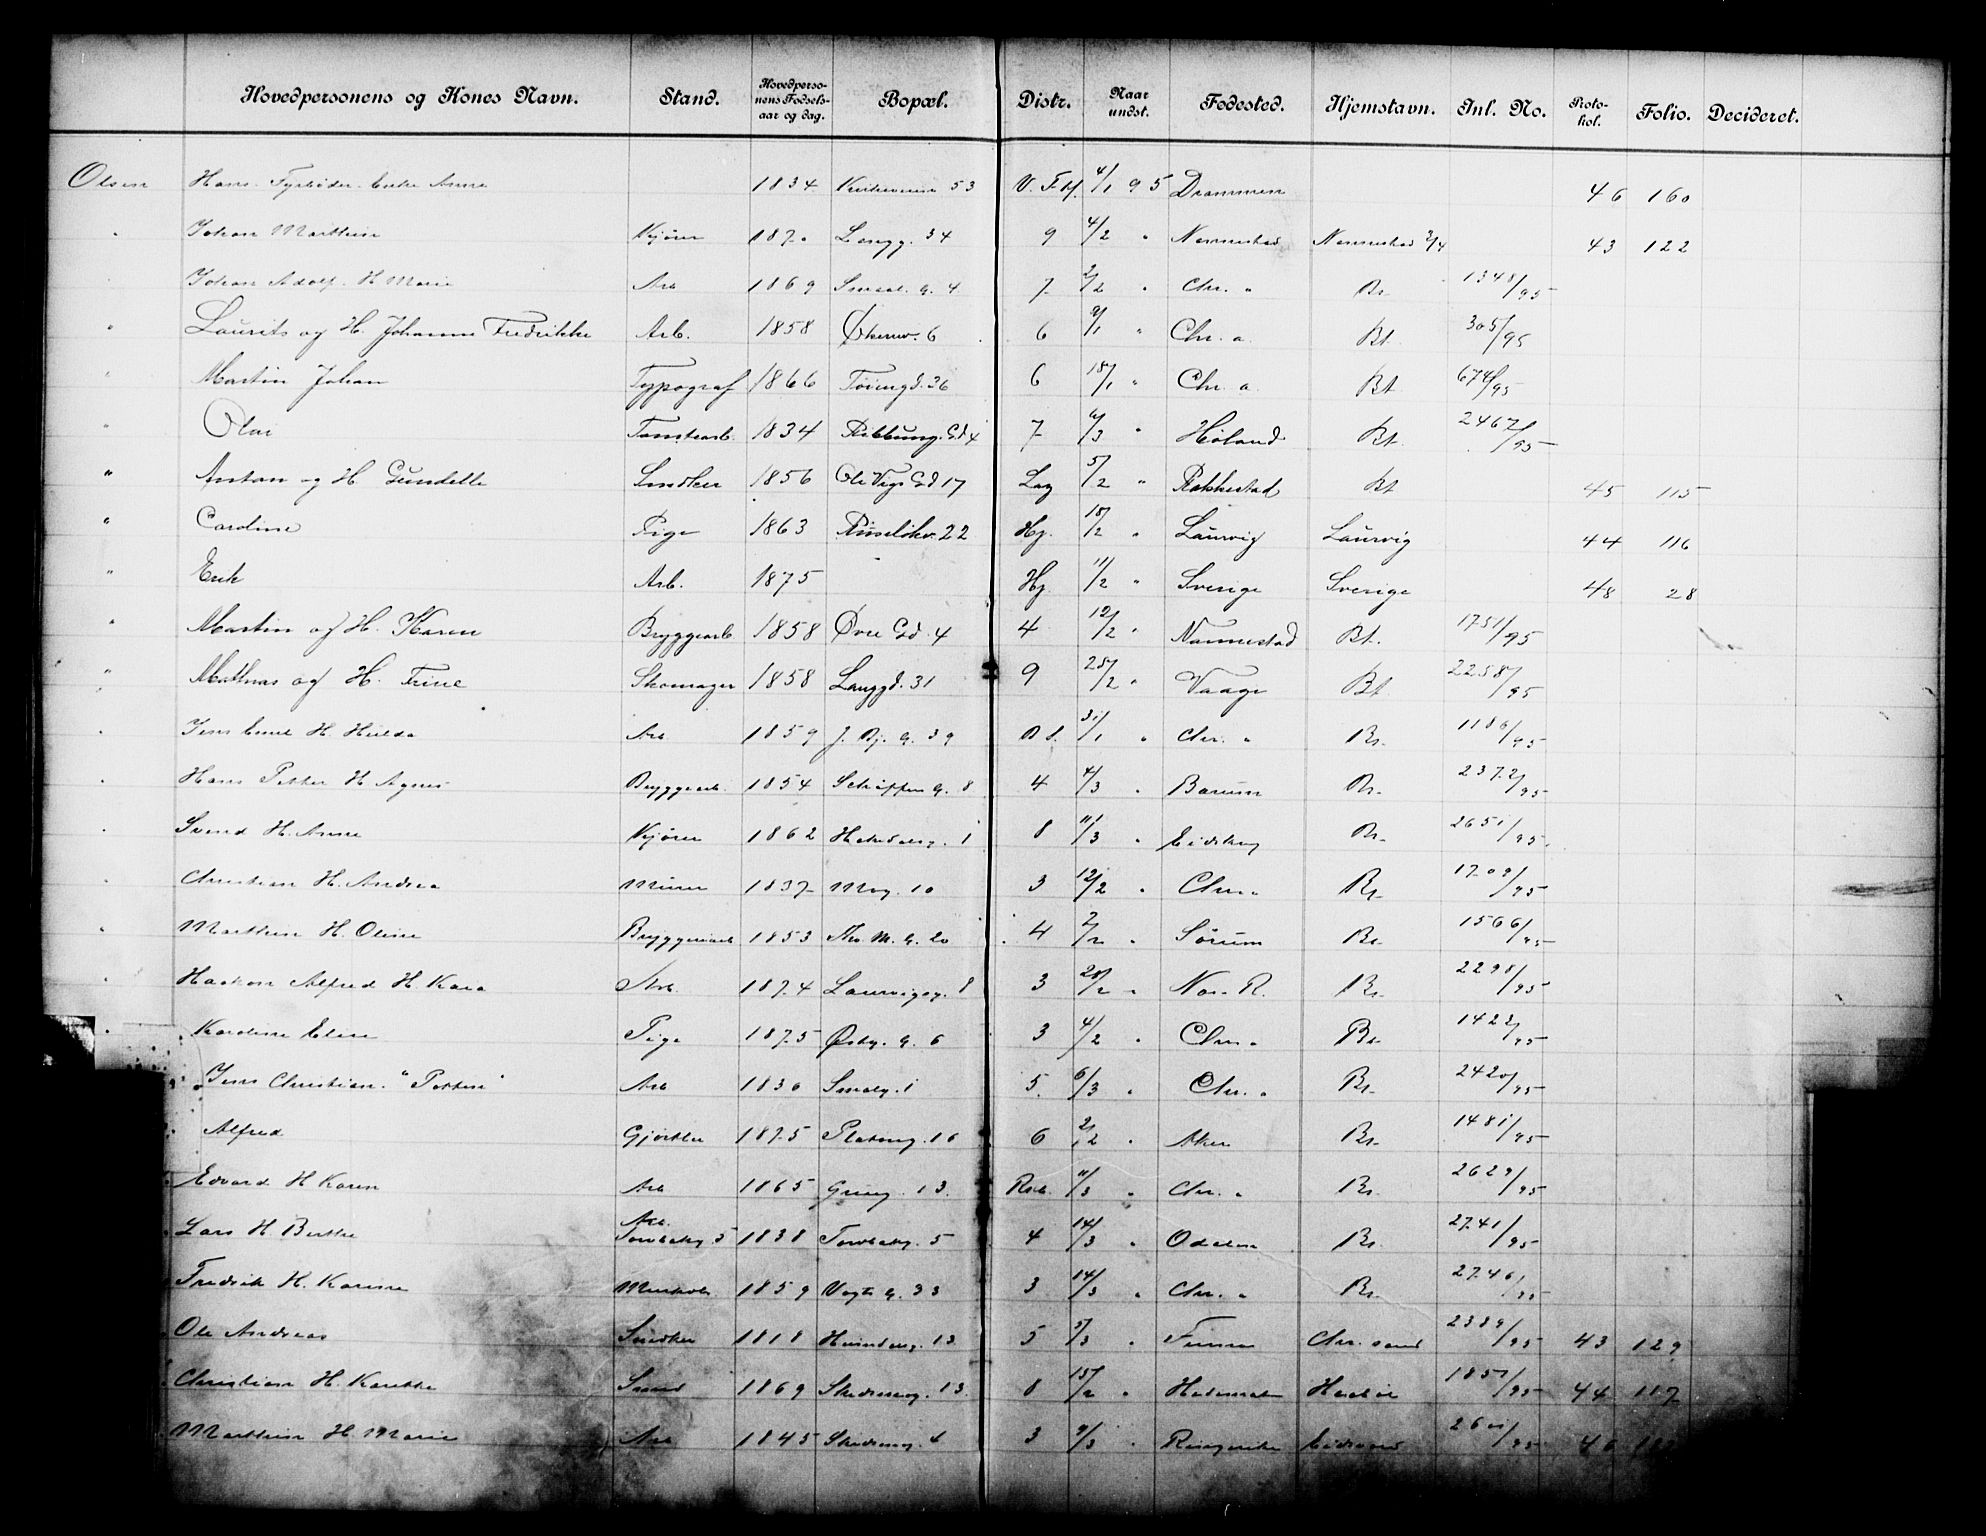 Hovedpersonens og Kones Navn. Stand. Hovedpersonens Fødselsaar og dag. Bopæl. Distr. Naar undst. Fødested. Hjemstavn. Inl. No. Protokol. Folio. Decideret.
Olsen Hans Fyrbøder Enke Anne 1834 53 V. F M. 4/1 95 Drammen 46 160
" Johan Marthin Kjører 1870 Langg. 34 9 4/2 " Nannestad Nannestad 43 122
" Johan Adolf H Marie Arb 1869 Smaal. G. 4 7 2/2 " Chr. a Bt. 1348/95
" Laurits og H. Johanne Fredrikke Arb. 1858 Økernv. 6 6 9/1 " Chr. a. Bt. 305/95
" Martin Johan Typograf 1866 Tøiengd. 36 6 18/1 " Chr. a. Bt 674/95
" Olav Tomtearb. 1834 Ribbung. Gd 4 7 6/3 " Høland Bt. 2467/95
" Anton og H Gundelle Snedker 1856 Ole Vigs Gd 17 Lag 5/2 " Rakkestad Bt 45 115
" Caroline Pige 1863 Ruseløkv. 22 Hj. 18/2 " Laurvig Laurvig 44 116
" Erik Arb. 1875 Hj 11/2 " Sverige Sverige 48 28
" Martin og H. Karen Bryggearb 1858 Øvre Gd. 4 4 12/2 " Nannestad Bt. 1751/95
" Mathias og H. Trine Skomager 1858 Langgd. 31 9 25/2 " Vaage Bt 2258/95
" Jens Emil H Hulda Arb 1859 J. Bj. G. 39 31/1 " Chr. a Bt. 1186/95
" Hans Petter H Agnes Bryggearb. 1854 Schüpps G. 8 4 4/3 " Bærum Bt. 2372/95
" Svend H. Anne Kjører 1862 1 8 11/3 " Eidskog Bt. 2651/95
" Christian H. Andrea Murer 1837 Mog. 10 3 12/2 " Chr. a Bt. 1709/95
" Marthin H. Oline Bryggeriarb 1853 Th. M. G. 20 4 7/2 " Sørum Bt. 1566/95
" Haakon Alfred H Kaia Arb. 1874 Laurvigsg. 8 3 28/2 " Nes. R. Bt. 2298/95
" Karoline Elise Pige 1875 Østg. G. 6 3 4/2 " Chr. a Bt. 1422/95
Jens Christian "Petter" Arb 1830 Smalg. 1 5. 6/3 " Chr. a Bt. 2420/95
Alfred Gjørtler 1875 Platoug. 16 6 2/2 " Aker Bt. 1481/95
Edvard H Karen Arb 1865 Grüng. 13. 11/3 " Chr. a Bt. 2629/95
Lars H. Berthe Arb. Torvbakg 5 1838 Torvbakg. 5 4 14/3 " Odalen Bt. 2741/95
Fredrik H. Karine 1859 Vogts G. 33 3 14/3 " Chr. a Bt. 2746/95
Ole Andreas Snedker 1818 13 5 5/3 " Chr. sand 2339/95 43 129
Christian H. Karethe Smed 1869 13. 8 15/2 " 1851/95 44 117
Marthin H. Marie Arb 1845 4 3 9/3 " Ringerike Eidsvold 46